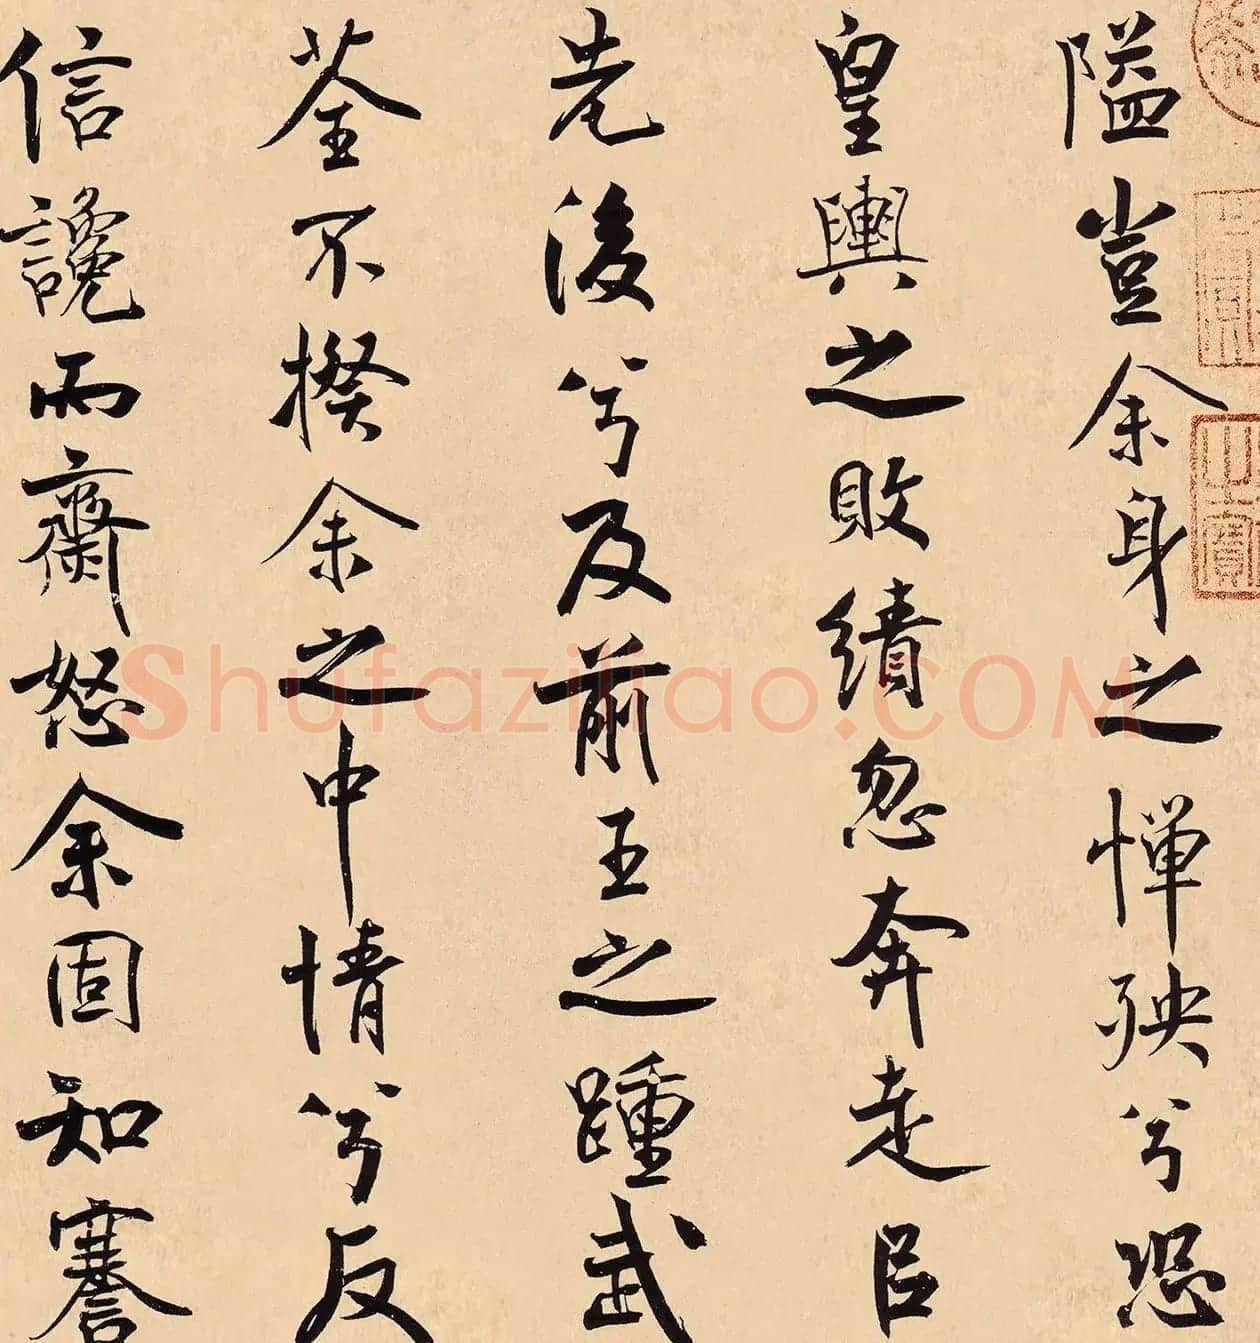 隘豈余身之憚殃兮恐
皇輿之敗績忽奔走㠯
先後兮及前王之踵武
荃不揆余之中情兮反
信讒而齋怒余固知謇
Shufaziliao.COM
之寶